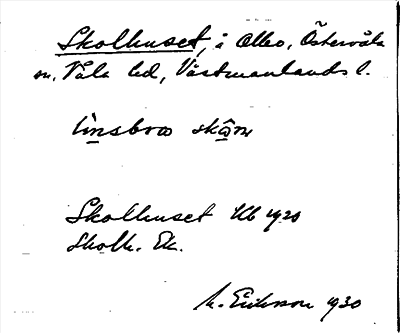 Skolhuset, å Allbo, Östervåla
sn, Våla hd, Västmanlands l.
Skolhuset Kb 1920
Skolh. Ek.
M. Eriksson 1930